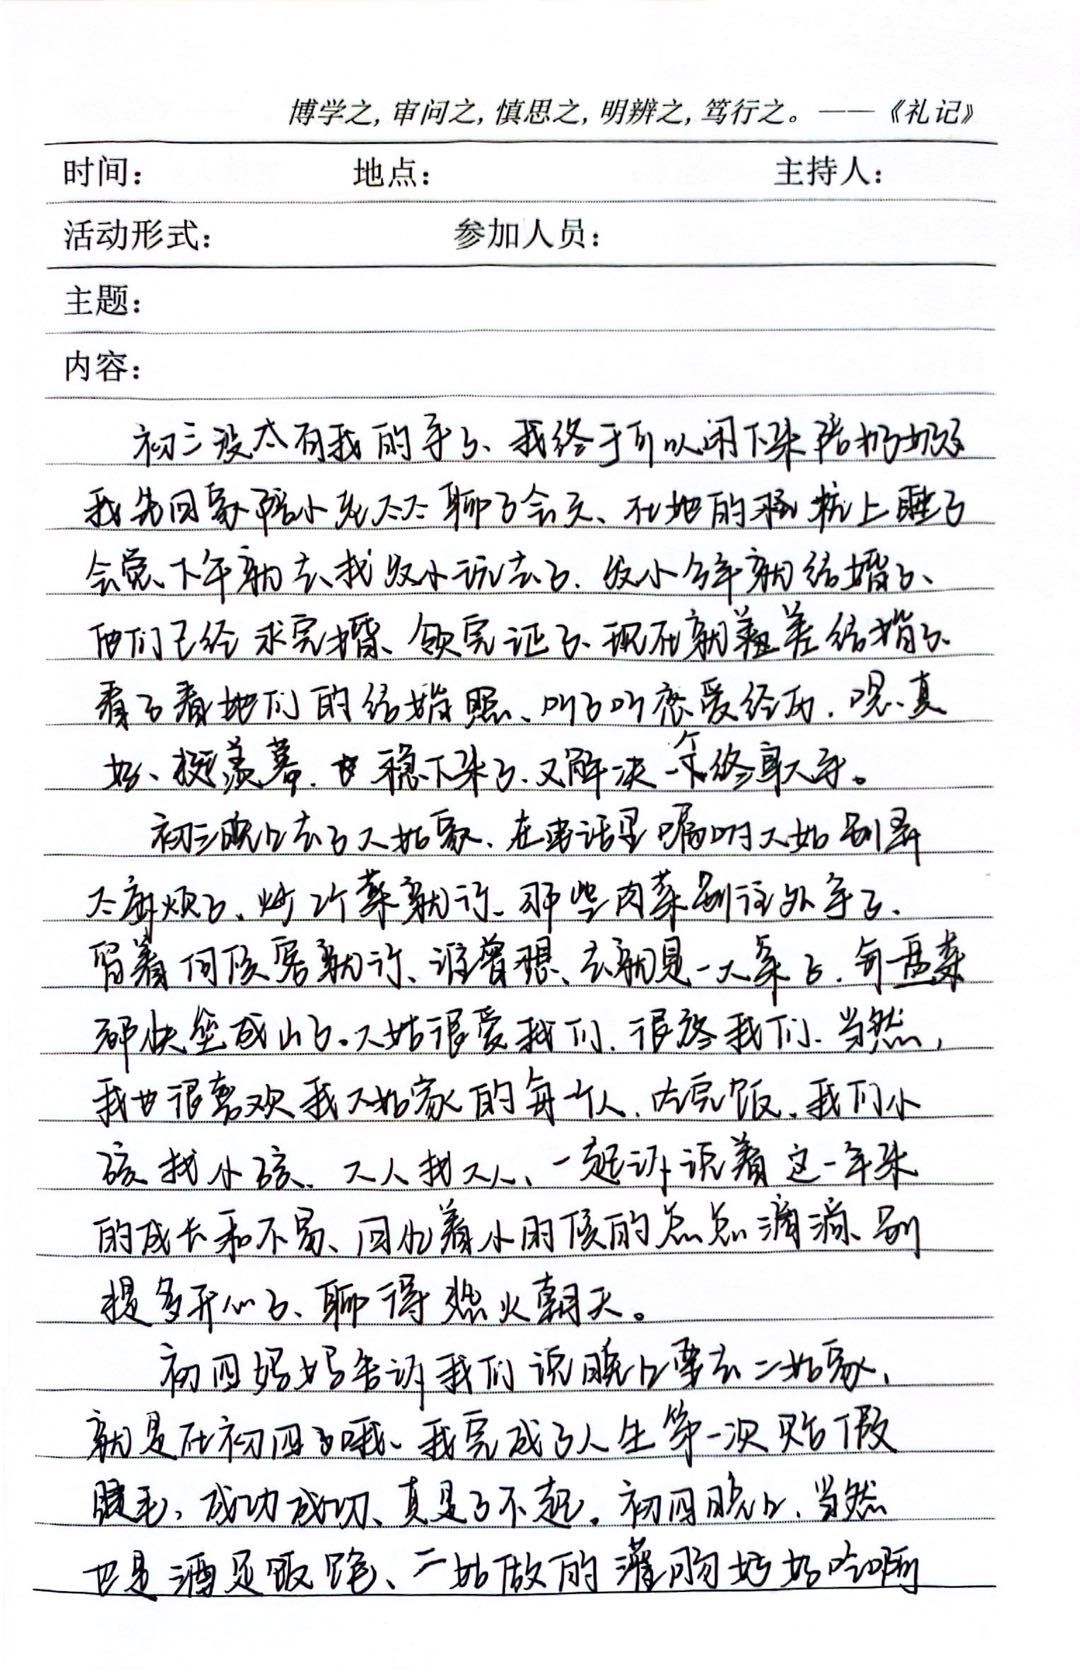 博学之，审问之，慎思之，明辨之，笃行之。——《礼记》
时间： 地点： 主持人：
活动形式： 参加人员：
主题：
内容：
初三没太有我的事了、我终于可以闲下来陪奶奶了
我先回家陪小老太太聊了会天、在她的炕上睡了
会觉、下午就去找发小玩去了、发小今年就结婚了、
他们已经求完婚、领完证了、现在就差结婚了、
看了看他们的结婚照、听了听恋爱经历，嗯、真
好、挺羡慕、也稳下来了、又解决一个终身大事。
初三晚上去了大姑家、在电话里嘱咐大姑别弄
太麻烦了、炒2个菜就行、那些肉菜别往外拿了、
留着伺候客就行、谁曾想、去就是一大桌了，每盘菜
都快垒成山了。大姑很爱我们、很疼我们、当然，
我也很喜欢我大姑家的每个人、吃完饭、我们小
孩找小孩、大人找大人、一起诉说着这一年来
的成长和不易、回忆着小时候的点点滴滴、别
提多开心了、聊得热火朝天。
初四妈妈告诉我们说晚上要去二姑家，
就是在初四了哦、我完成了人生第一次贴假
睫毛，成功成功、真是了不起。初四晚上、当然
也是酒足饭饱、二姑做的灌肠好好吃啊